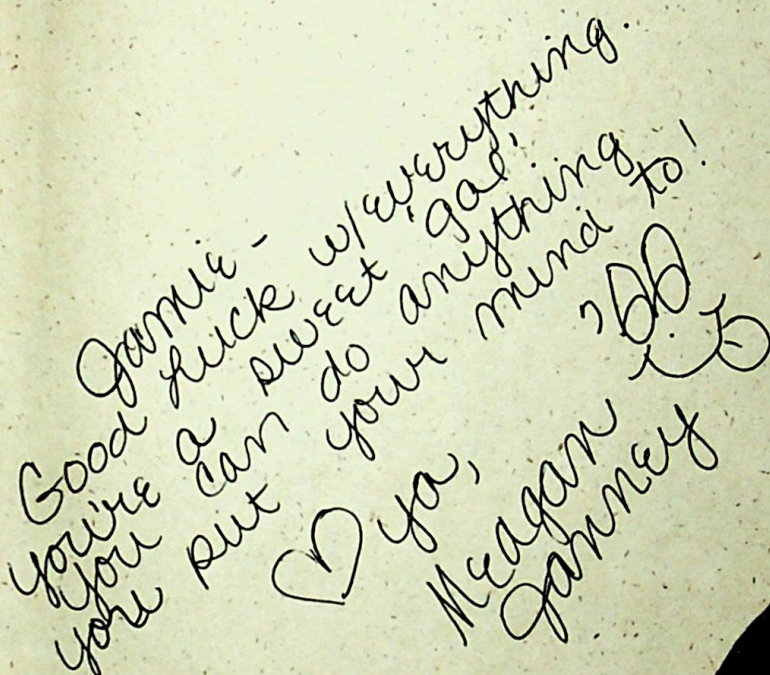 Jamie -
Good Luck w/everything.
You're a sweet 'gal'
You can do anything
you put your mind to!
'88
♡ ya,
Meagan
Janney